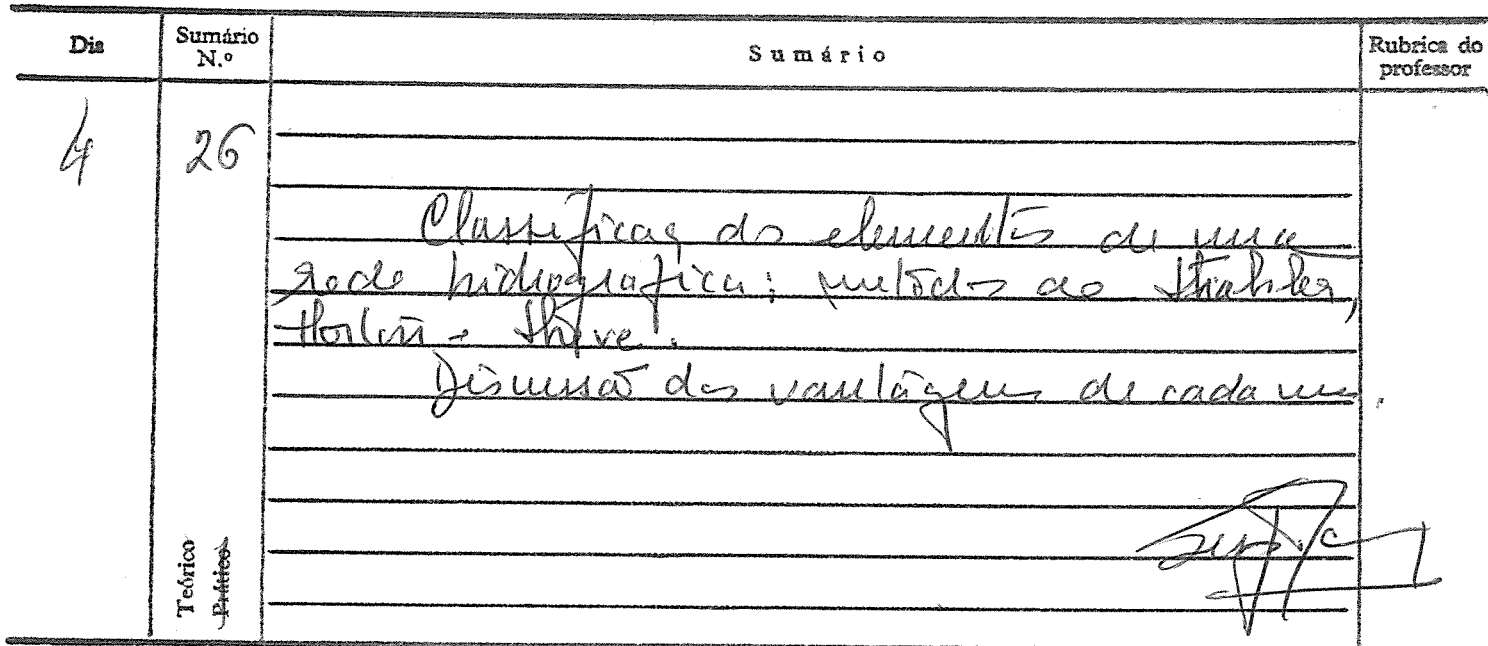 Dia Sumário N.º Sumário Rubrica do professor
4 26
Classificaç dos elementos de uma
rede hidrografica: metodos de Strahler,
Horton e Shreve.
Discussão das vantagens de cada um.
Teórico
Prático